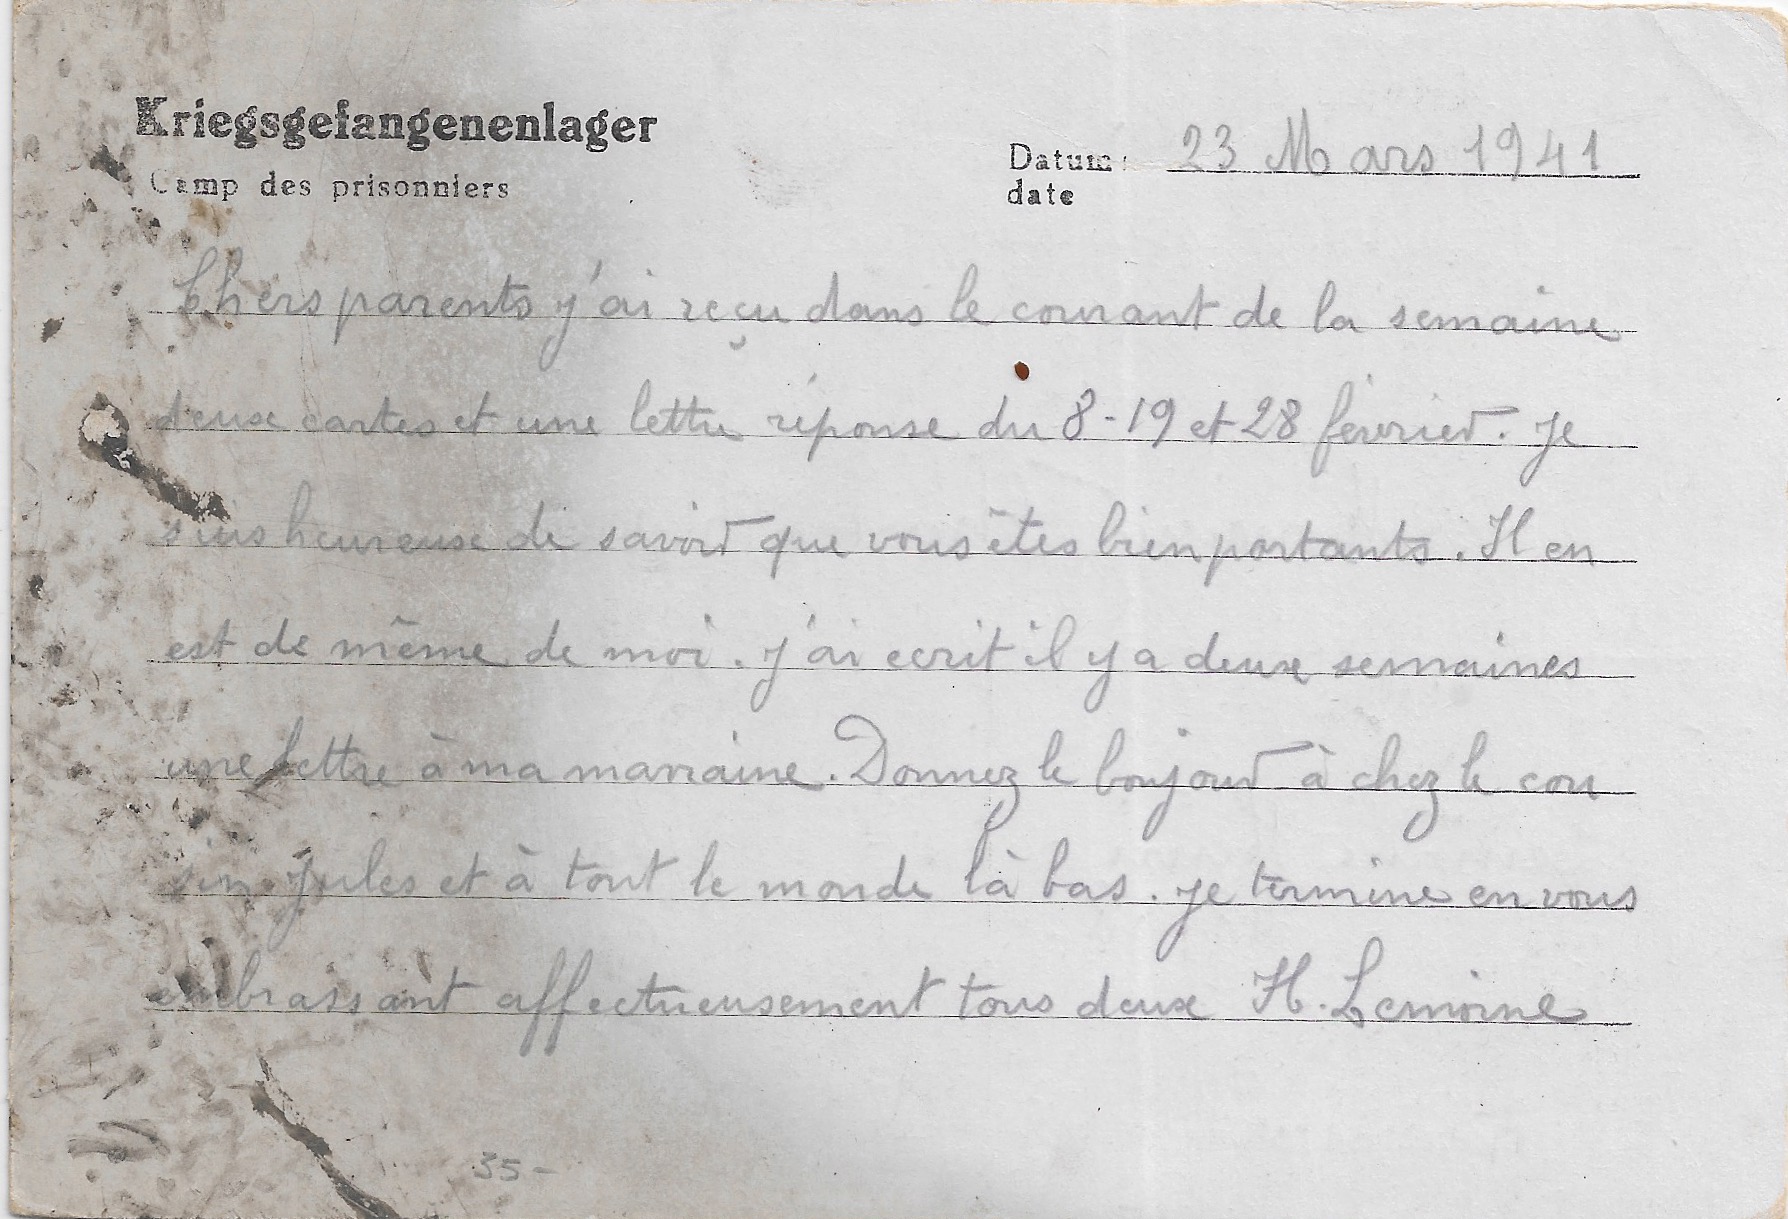 Kriegsgefangenenlager
Camp des prisonniers
Datum:
date
23 Mars 1941
Chers parents j'ai reçu dans le courant de la semaine
deux cartes et une lettre réponse du 8-19 et 28 février. je
suis heureuse de savoir que vous êtes bien portants. Il en
est de même de moi. j'ai ecrit il y a deux semaines
une lettre à ma marraine. Donnez le bonjour à chez le cou
sin Jules et à tout le monde là bas. je termine en vous
embrassant affectueusement tous deux H. Lemoine
35-